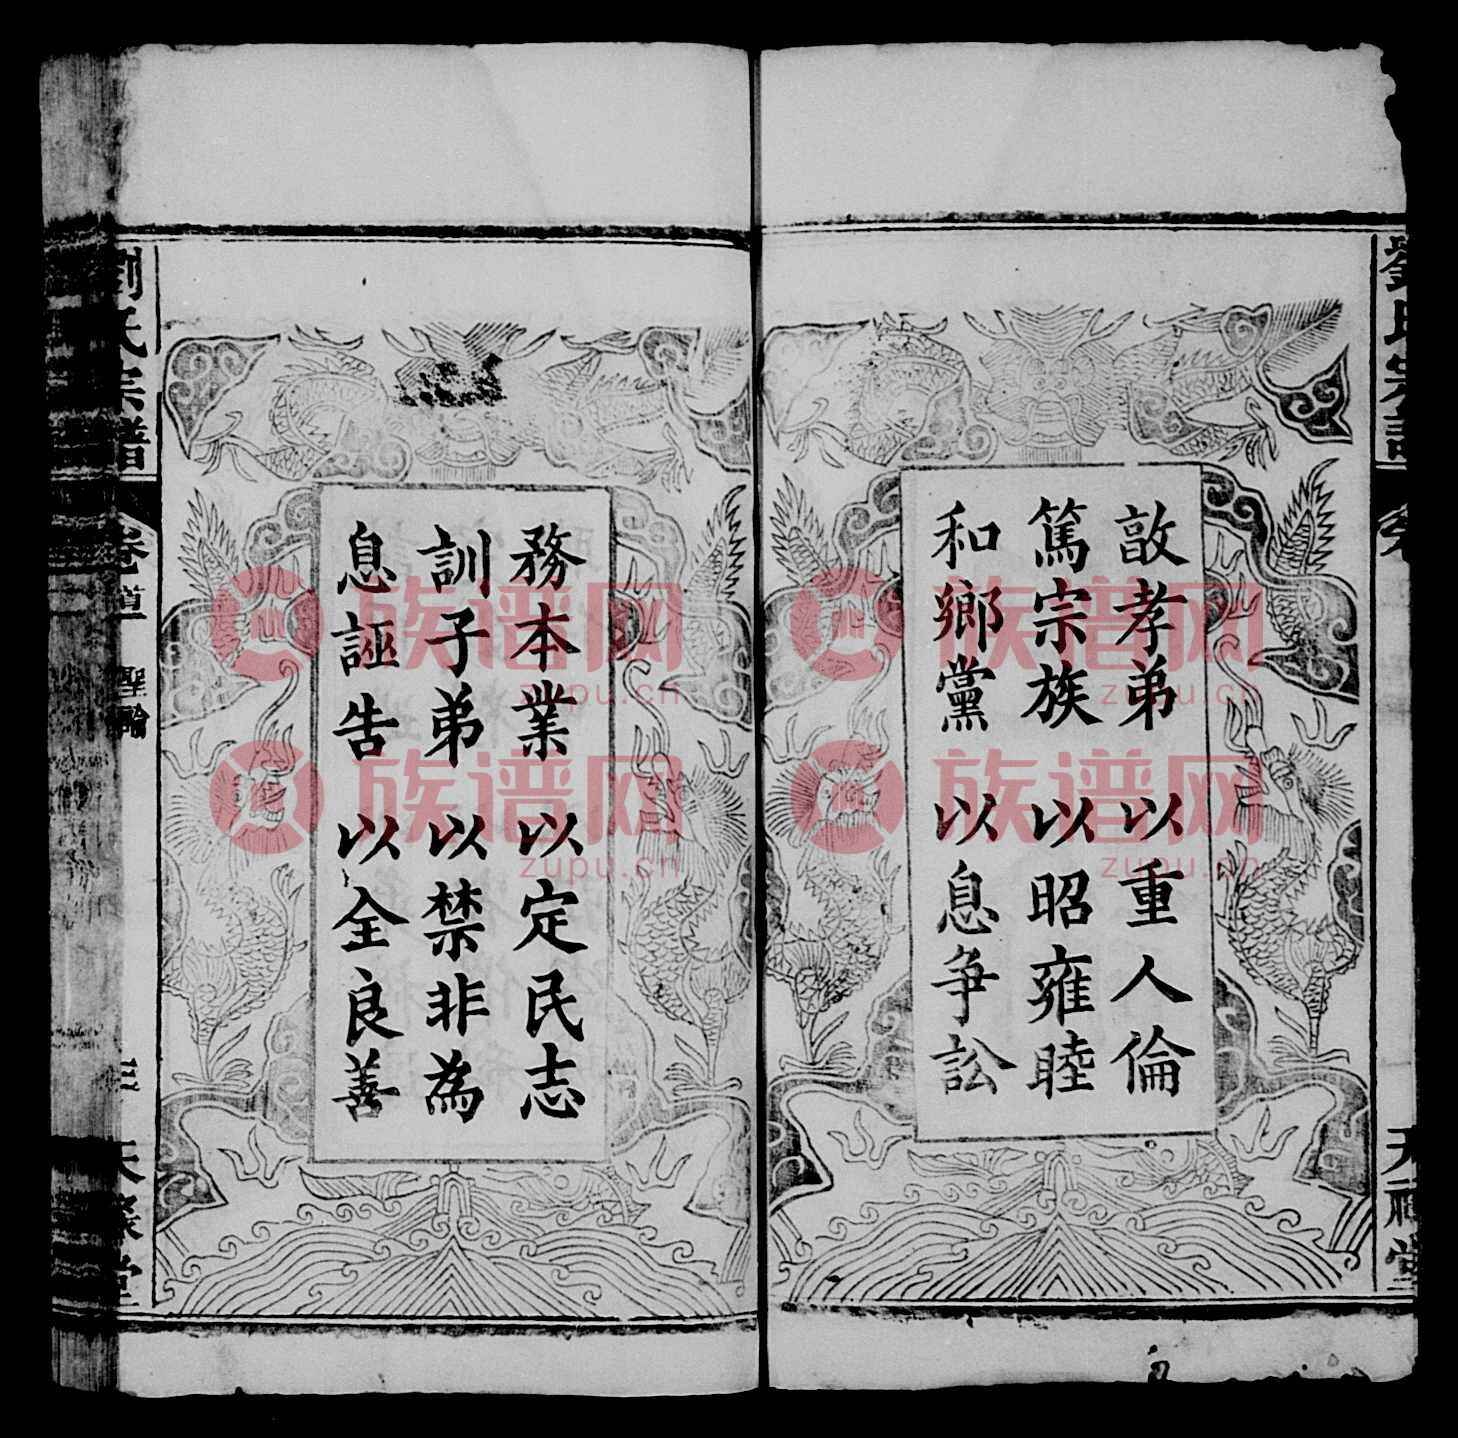 敦孝弟以重人倫
篤宗族以昭雍睦
和鄉黨以息爭訟
務本業以定民志
訓子弟以禁非為
息誣告以全良善
劉氏宗譜
卷首
聖諭
天祿堂
族谱网
zupu.cn
族谱网
zupu.cn
族谱网
zupu.cn
族谱网
zupu.cn